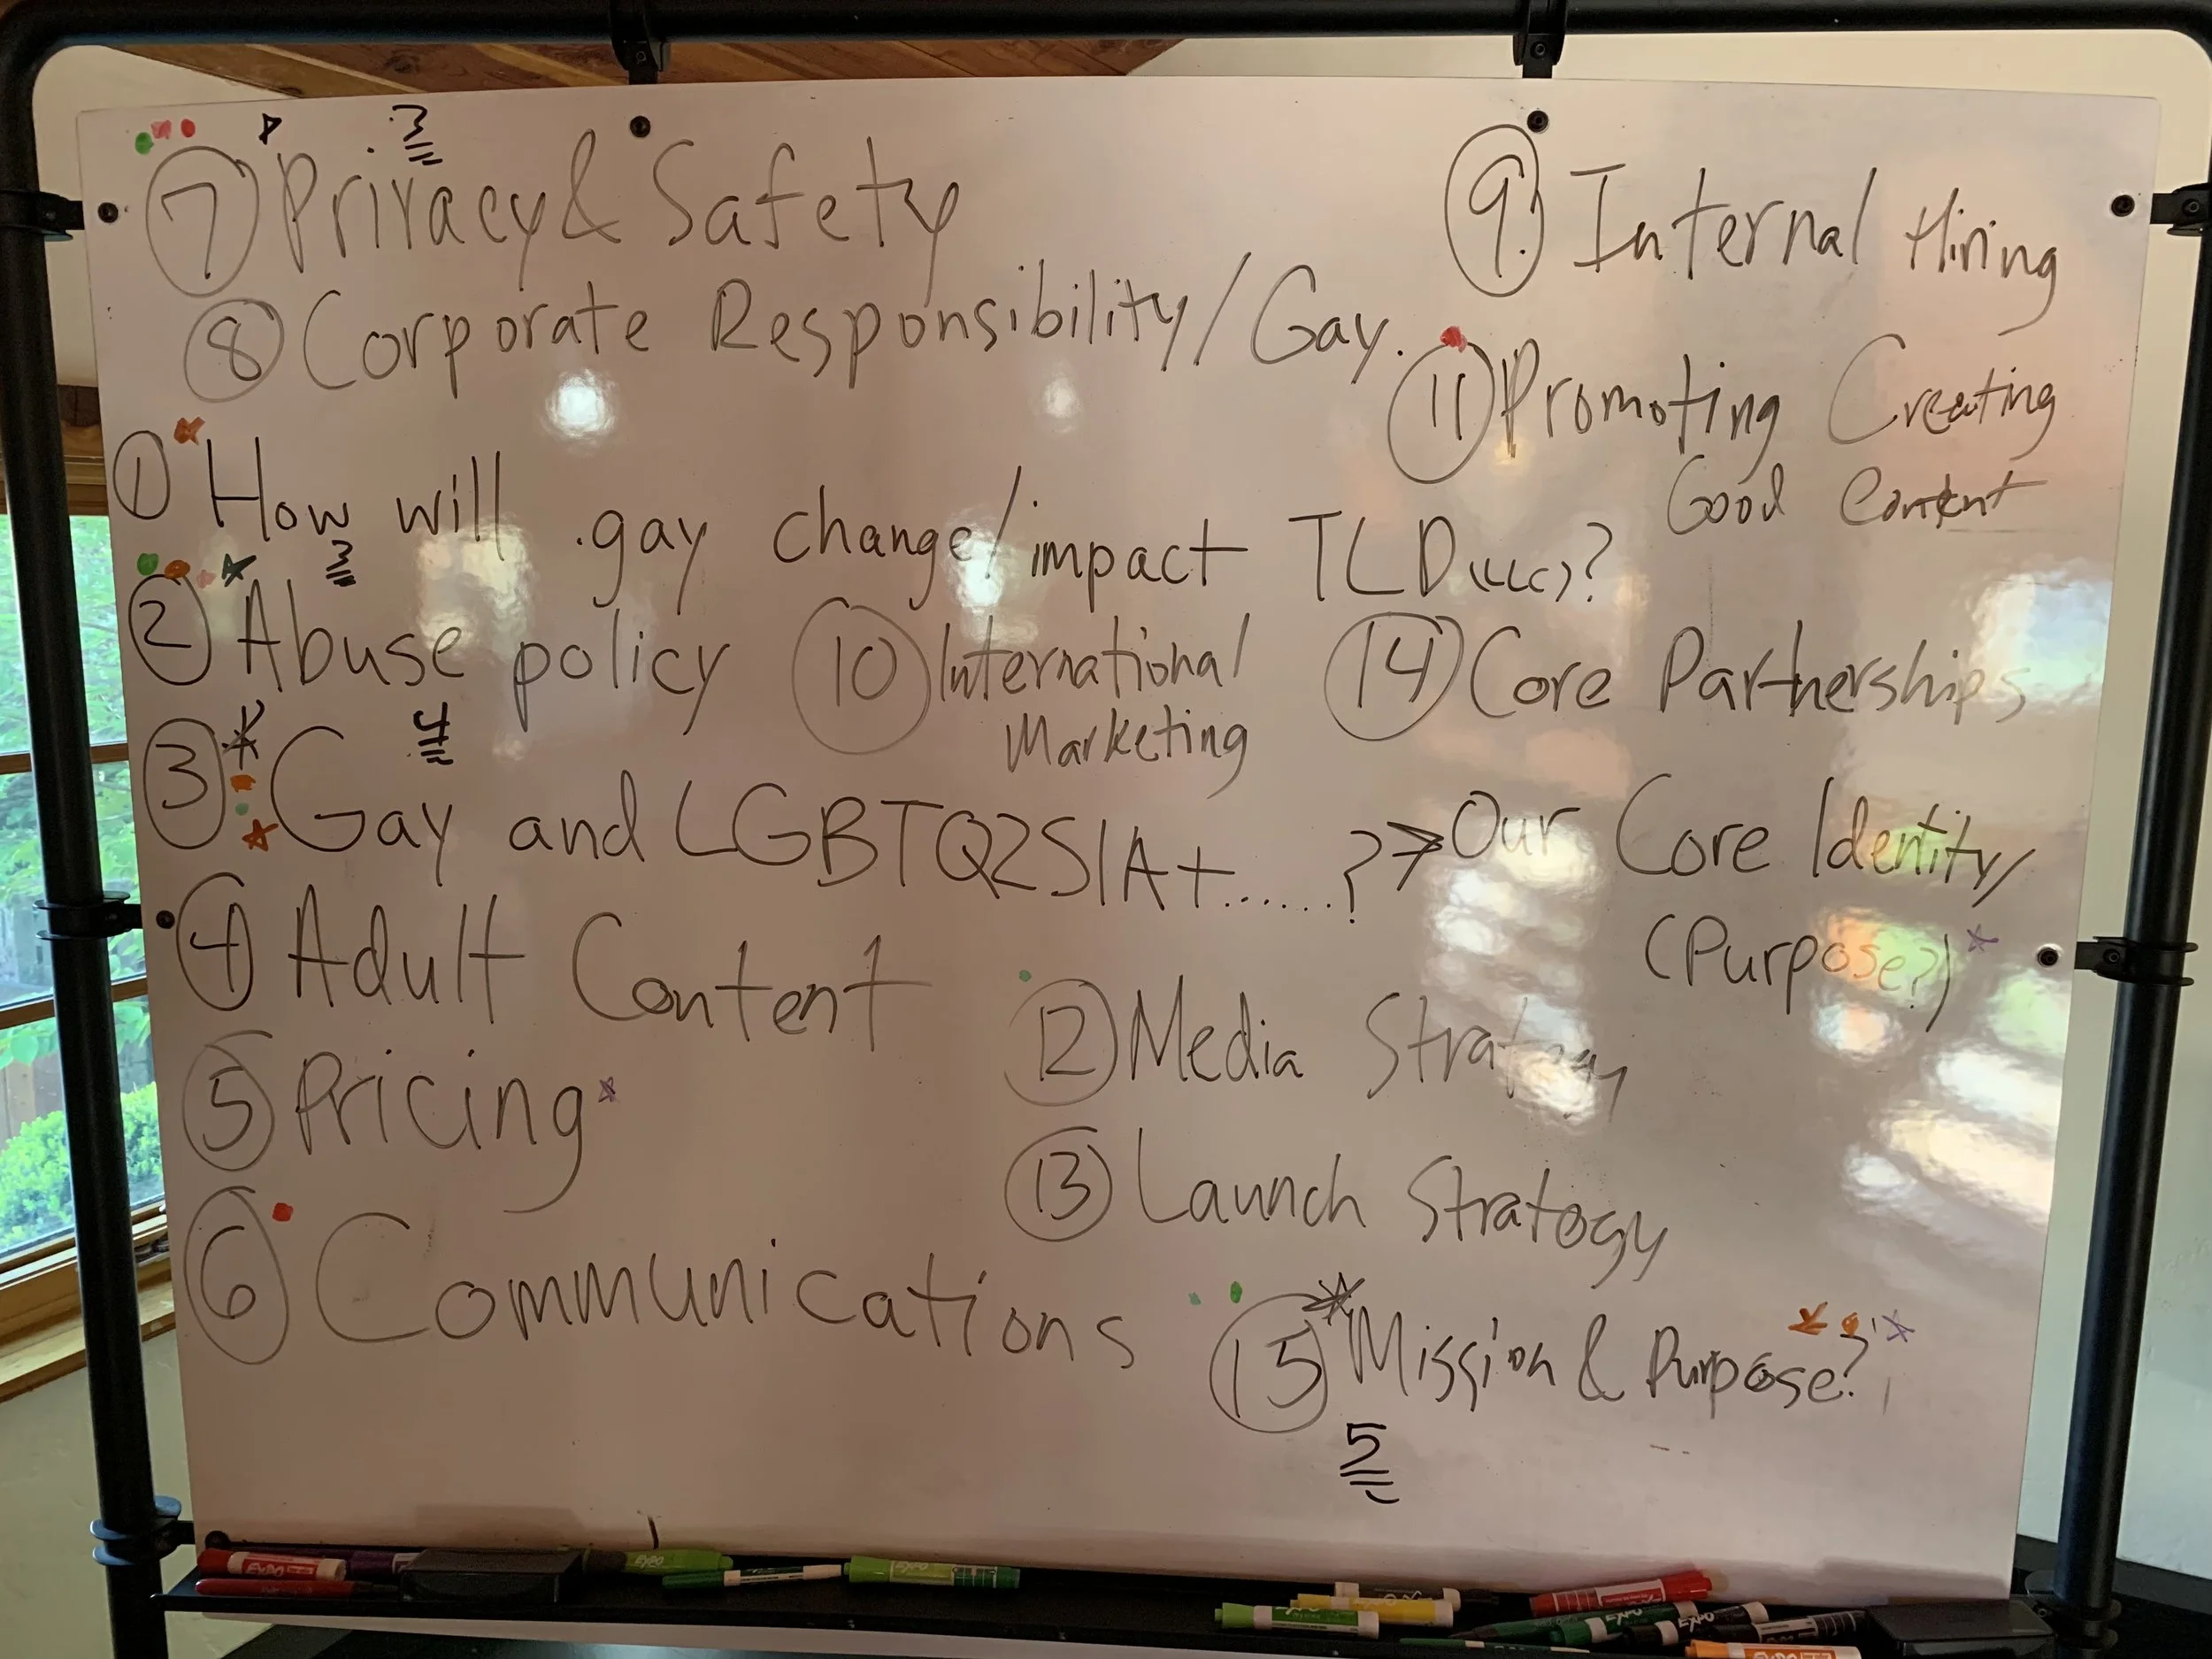 3
⑦ Privacy & Safety
⑧ Corporate Responsibility/Gay.
⑨. Internal Hiring
⑪ Promoting Creating
Good Content
① How will .gay change/impact TLD (LLC)?
3
② Abuse policy
⑩ International
Marketing
⑭ Core Partnerships
4
③ Gay and LGBTQ2SIA+......? → Our Core Identity/
(Purpose?)
④ Adult Content
⑤ Pricing
⑥ Communications
⑫ Media Strategy
⑬ Launch Stratogy
⑮ Mission & Purpose?
5
EXPO
EXPO
EXPO
EXPO
EXPO
EXPO